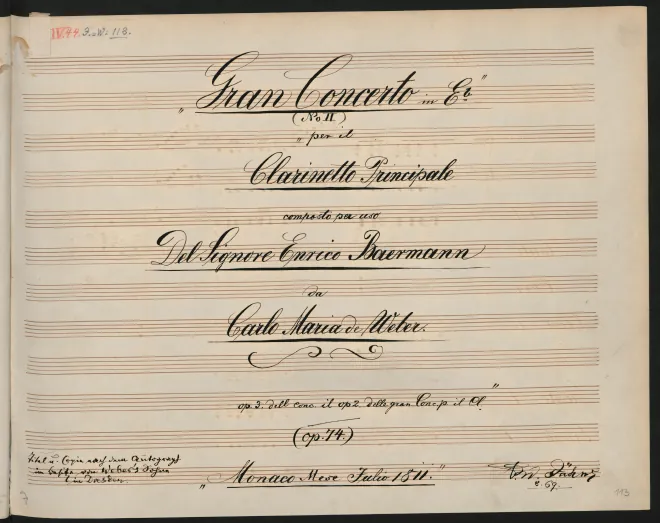 IV.44. J.-W. 113.
„Gran Concerto in E♭"
(No II)
„ per il
Clarinetto Principale
composto per uso
Del Signore Enrico Baermann
da
Carlo Maria de Weber.
op. 3. dell conc. il op 2. delle gran Conc. p il Cl. "
(op. 74.)
Titel u. Copie nach dem Autograf
im Besitze von Weber's Sohn
in Dresden
„ Monaco Mese Julio 1811. "
F. W. Jähns
113
7